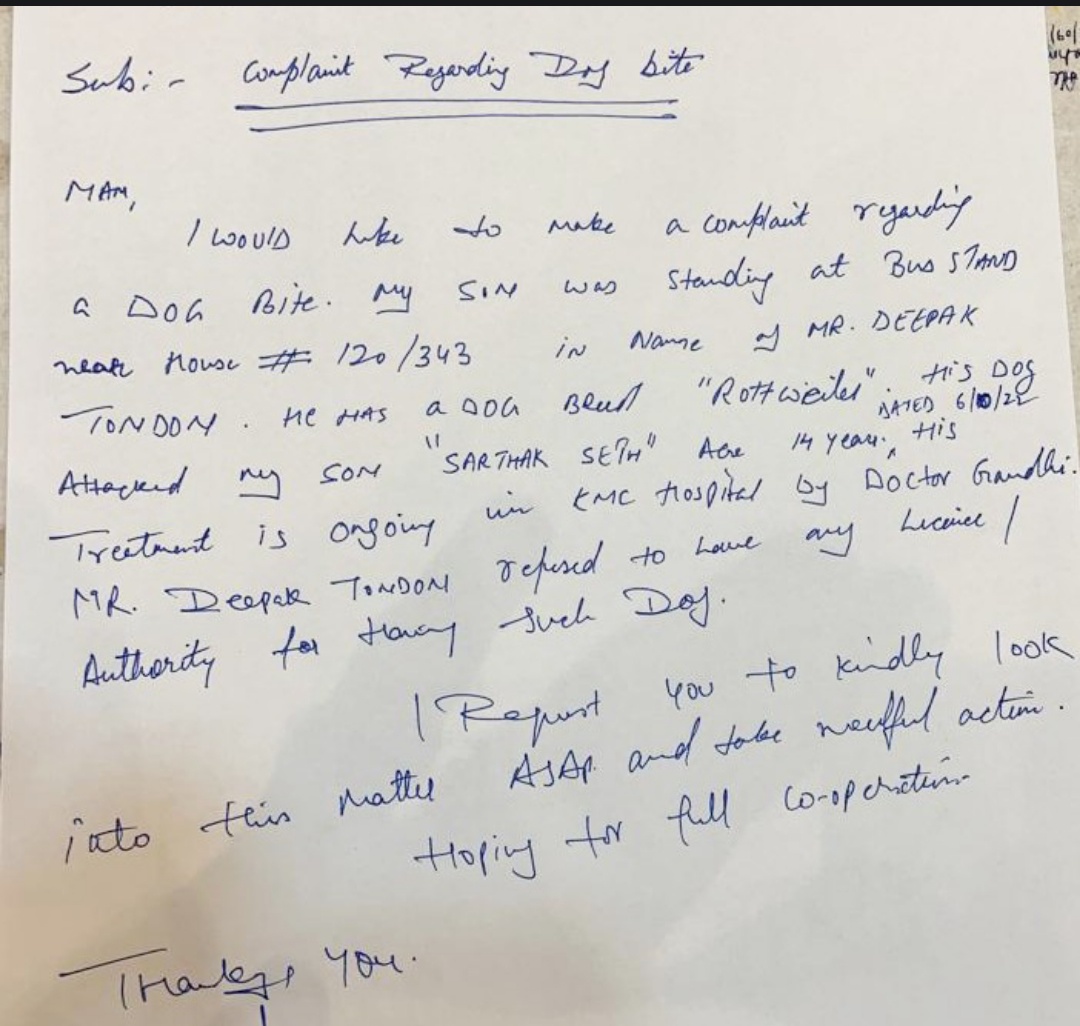 Sub:- Complaint Regarding Dog bite
MAM,
I WOULD like to make a complaint regarding
a DOG Bite. My SON was standing at Bus STAND
near House # 120/343 in Name of MR. DEEPAK
TONDON. HE HAS a DOG Breed "Rottweiler". His DOG
DATED 6/10/22
Attacked my SON "SARTHAK SETH" Age 14 years. His
Treatment is ongoing in KMC Hospital by Doctor Gandhi.
MR. Deepak TONDON refused to have any Licence /
Authority for Having such Dog.
I Request you to kindly look
into this matter ASAP. and take needful action.
Hoping for full co-operation
Thanks You.